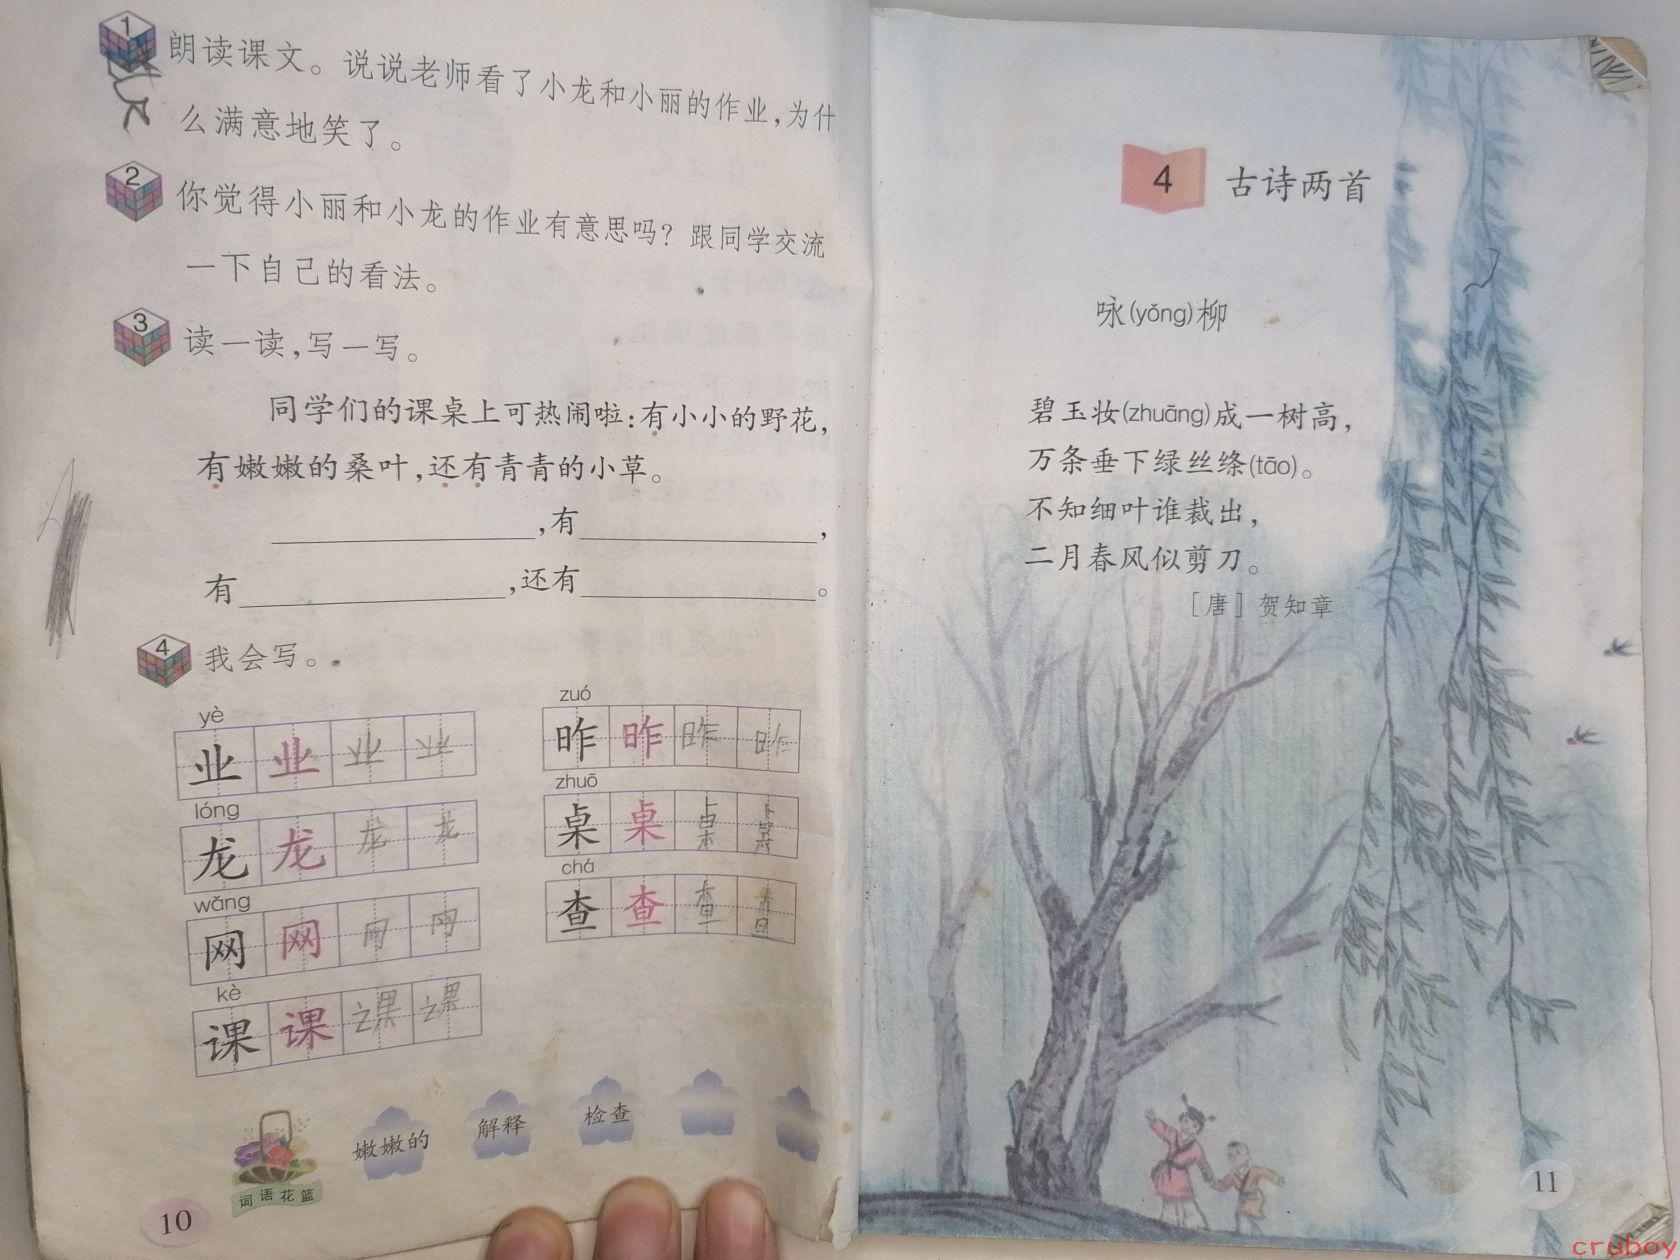 1
朗读课文。说说老师看了小龙和小丽的作业,为什
么满意地笑了。
2
你觉得小丽和小龙的作业有意思吗?跟同学交流
一下自己的看法。
3
读一读,写一写。
同学们的课桌上可热闹啦:有小小的野花,
有嫩嫩的桑叶,还有青青的小草。
,有 ,
有 ,还有 。
4
我会写。
yè
业 业 业 业
lóng
龙 龙 龙 龙
wǎng
网 网 网 网
kè
课 课 课 课
zuó
昨 昨 昨 昨
zhuō
桌 桌 桌 桌
chá
查 查 查 查
词语花篮
嫩嫩的 解释 检查
10
4 古诗两首
咏(yǒng)柳
碧玉妆(zhuāng)成一树高,
万条垂下绿丝绦(tāo)。
不知细叶谁裁出,
二月春风似剪刀。
[唐] 贺知章
11
cruboy